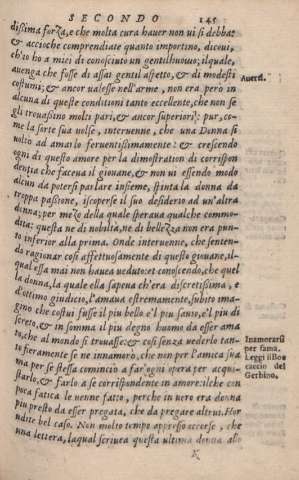 SECONDO 145
disima forza, e che molta cura hauer non ui si debba:
& accioche comprendiate quanto importino, dicoui,
ch'io ho a miei dì conosciuto un gentilhuomo; ilquale,
auenga che fosse di assai gentil aspetto, & di modesti
Auerti.
costumi; & ancor ualesse nell'arme, non era però in
alcuna di queste conditioni tanto eccellente, che non se
gli trouasino molti pari, & ancor superiori: pur, co=
me la sorte sua uolse, interuenne, che una Donna si
uolto ad amarlo feruentissimamente: & crescendo
ogni dì questo amore per la dimostration di corrispon
dentia che faceua il giouane, & non ui essendo modo
alcun da potersi parlare insieme, spinta la donna da
troppa passione, iscoperse il suo desiderio ad un'altra
donna; per mezo della quale speraua qualche commo=
dità; questa ne di nobiltà, ne di bellezza non era pun=
to inferior alla prima. Onde interuenne, che senten=
do ragionar così affettuosamente di questo giouane, il=
qual essa mai non hauea ueduto: et conoscendo, che quel
la donna, la quale ella sapeua ch'era discretissima, e
d'ottimo giudicio, l'amaua estremamente, subito ima=
gino che costui fusse il piu bello e'l piu sauio, e'l piu di
screto, & in somma il piu degno huomo da esser ama
to, che al mondo si trouasse: & così senza uederlo tan=
to fieramente se ne innamorò, che non per l'amica sua
Inamorarsi
per fama.
Leggi il Boc
caccio del
Gerbino.
ma per se stessa cominciò a far ogni opera per acqui=
starlo, & farlo a se corrispondente in amore: ilche con
poca fatica le uenne fatto, perche in uero era donna
piu presto da esser pregata, che da pregare altrui. Hor
udite bel caso. Non molto tempo appresso occorse, che
una lettera, laqual scriuea questa ultima donna allo
K